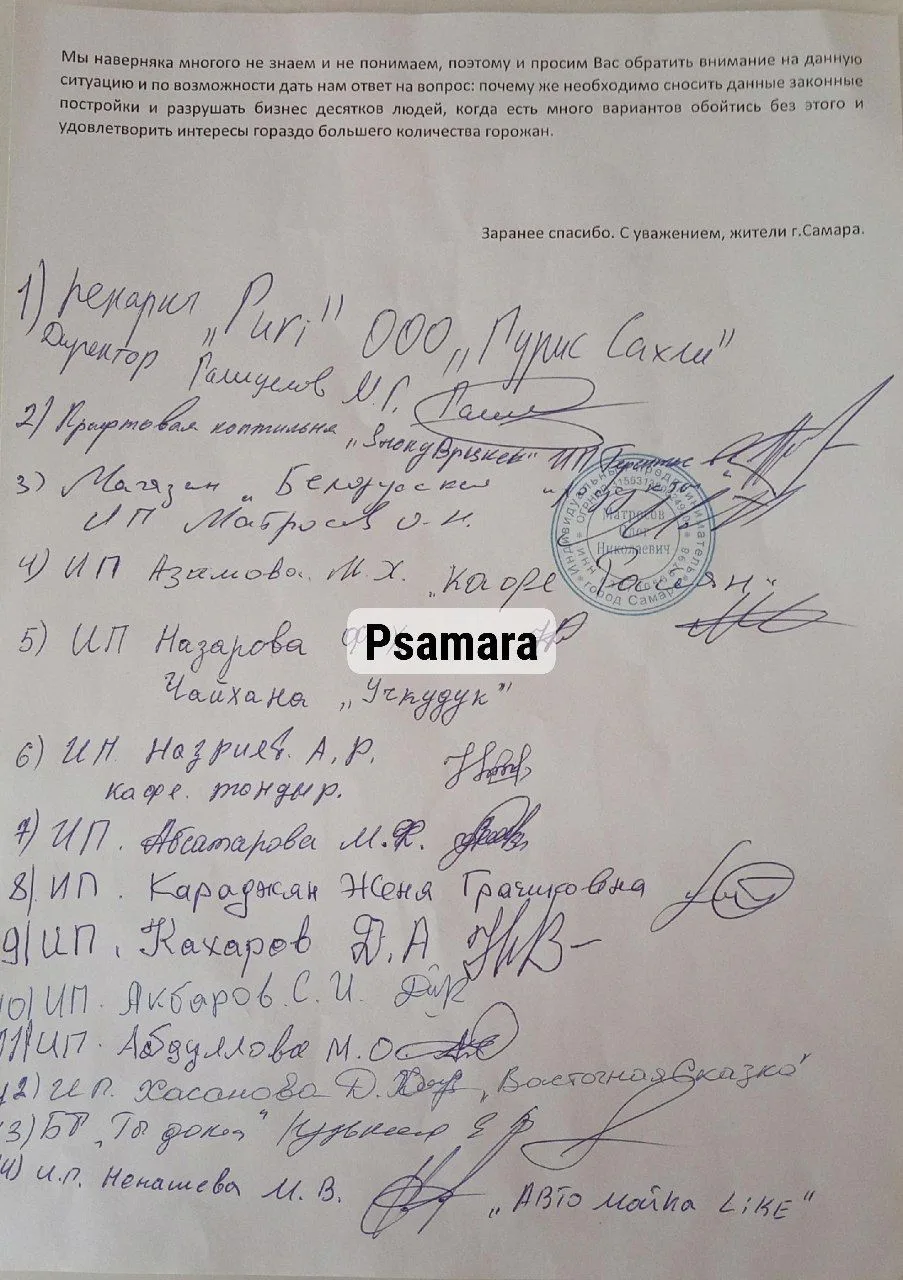 Мы наверняка многого не знаем и не понимаем, поэтому и просим Вас обратить внимание на данную
ситуацию и по возможности дать нам ответ на вопрос: почему же необходимо сносить данные законные
постройки и разрушать бизнес десятков людей, когда есть много вариантов обойтись без этого и
удовлетворить интересы гораздо большего количества горожан.
Заранее спасибо. С уважением, жители г.Самара.
1) пекарня „Puri" ООО „Пурис Сахли"
Директор М.Г.
2) Крафтовая коптильня ИП
3) Магазин „Белорусский
ИП Матросов О.Н.
Индивидуальный предприниматель
Матросов
Олег
Николаевич
город Самара
4) ИП Азамова М.Х. „Кафе
5) ИП Назарова
Psamara
Чайхана „Учкудук"
6) ИП Назриев А.Р.
кафе. тондыр.
7) ИП. Абсатарова М.Ф.
8) ИП. Караджян Женя Грачиковна
9) ИП. Кахаров Д.А
10) ИП. Акбаров С.И.
11) ИП. Абдуллова М.О
12) ИП. Хасанова Д. „Восточная Сказка"
13) „Ты дома"
14) И.П. Ненашева М.В. „Авто мойка LiKE"